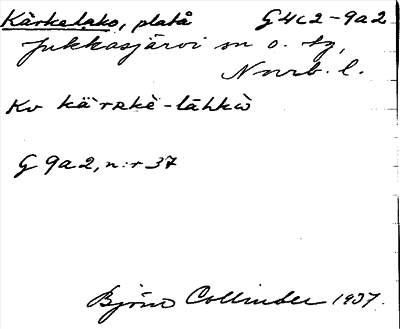 Kärkelako, platå G4c2-9a2
Jukkasjärvi sn o. tg,
Norrb. l.
Kv kärⱥkè-lāhkò
G 9a2, n:r 37
Björn Collinder 1937.